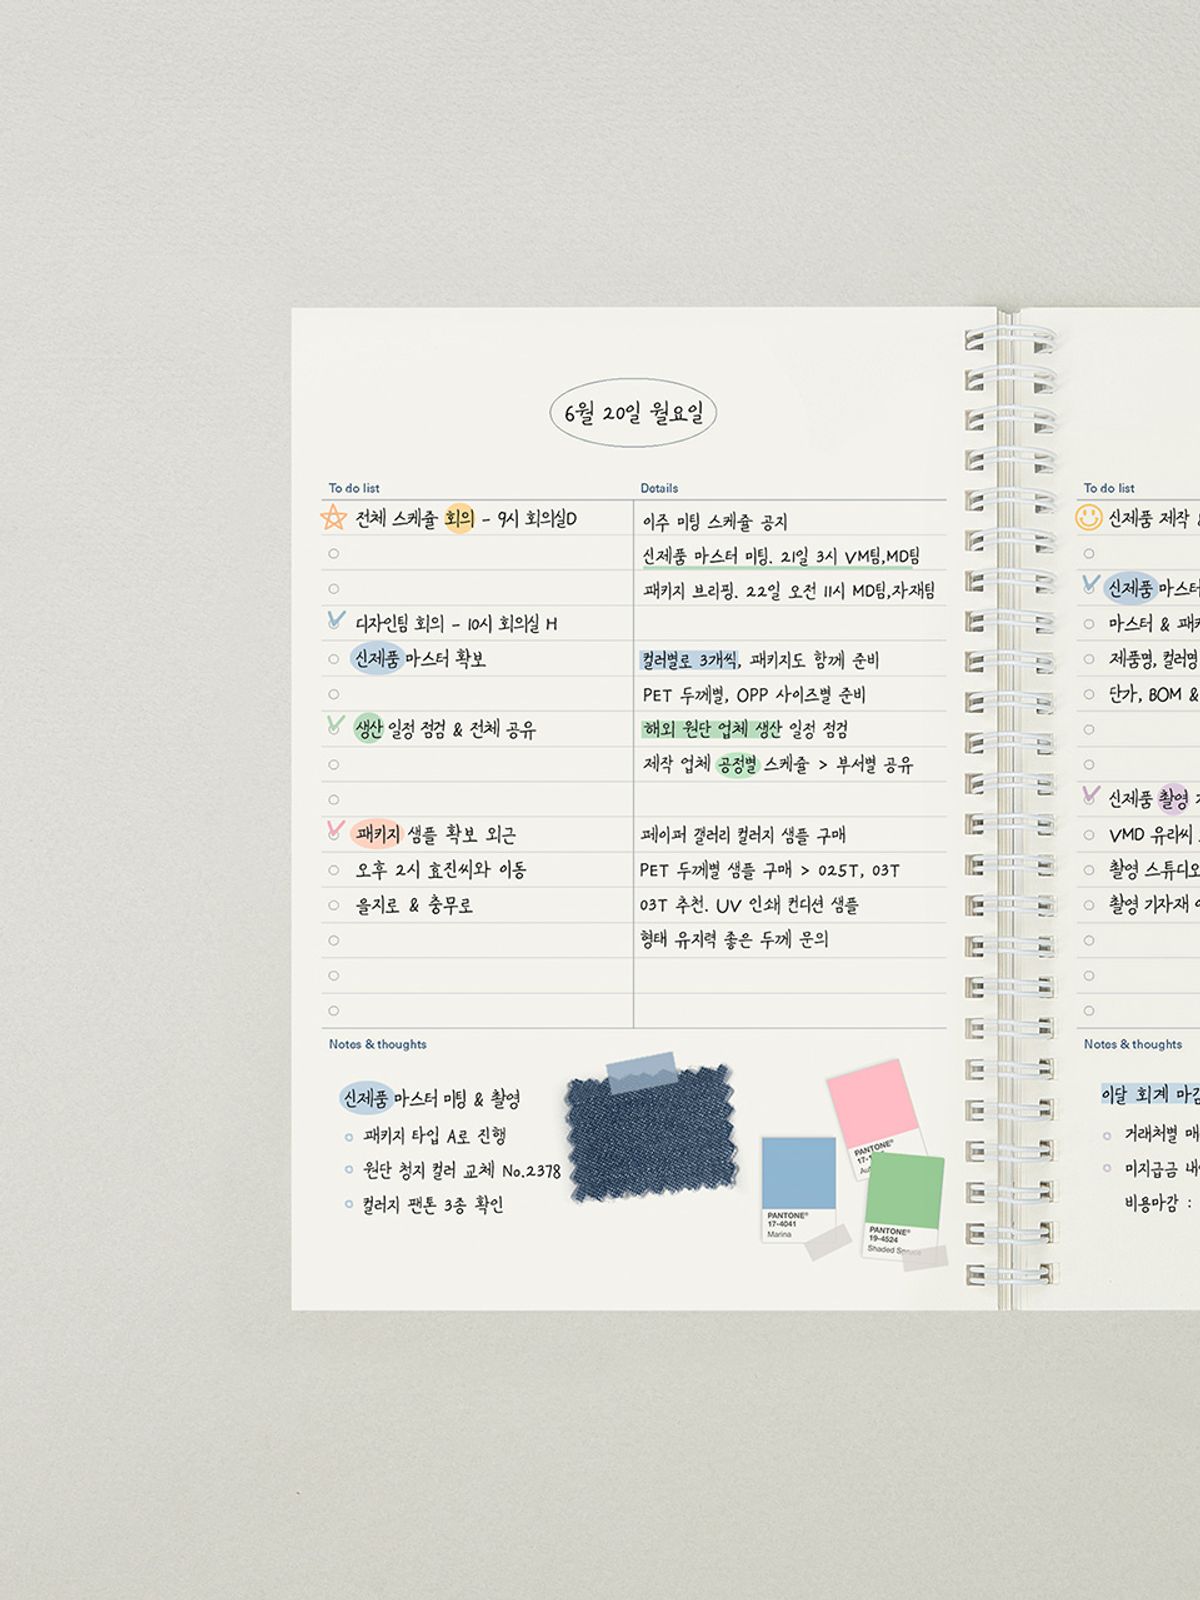 6월 20일 월요일
To do list
Details
전체 스케쥴 회의 - 9시 회의실D
이주 미팅 스케쥴 공지
신제품 마스터 미팅. 21일 3시 VM팀,MD팀
패키지 브리핑. 22일 오전 11시 MD팀,자재팀
디자인팀 회의 - 10시 회의실 H
신제품 마스터 확보
컬러별로 3개씩, 패키지도 함께 준비
PET 두께별, OPP 사이즈별 준비
생산 일정 점검 & 전체 공유
해외 원단 업체 생산 일정 점검
제작 업체 공정별 스케쥴 > 부서별 공유
패키지 샘플 확보 외근
페이퍼 갤러리 컬러지 샘플 구매
오후 2시 효진씨와 이동
PET 두께별 샘플 구매 > 025T, 03T
을지로 & 충무로
03T 추천. UV 인쇄 컨디션 샘플
형태 유지력 좋은 두께 문의
Notes & thoughts
신제품 마스터 미팅 & 촬영
패키지 타입 A로 진행
원단 청지 컬러 교체 No.2378
컬러지 팬톤 3종 확인
PANTONE®
PANTONE®
17-4041
Marina
PANTONE®
19-4524
Shaded
To do list
신제품 제작
신제품 마스터
마스터 &
제품명, 컬러명
단가, BOM &
신제품 촬영
VMD 유라씨
촬영 스튜디오
촬영 기자재
Notes & thoughts
이달 회계 마감
거래처별
미지급금
비용마감 :